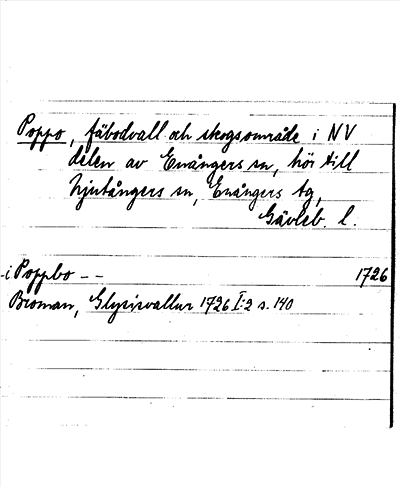 Poppo, fäbodvall och skogsområde i NV
delen av Enångers sn, hör till
Njutångers sn, Enångers tg,
Gävleb. l.
-i Poppbo - - 1726
Broman, Glysisvallur 1726 I:2 s. 140